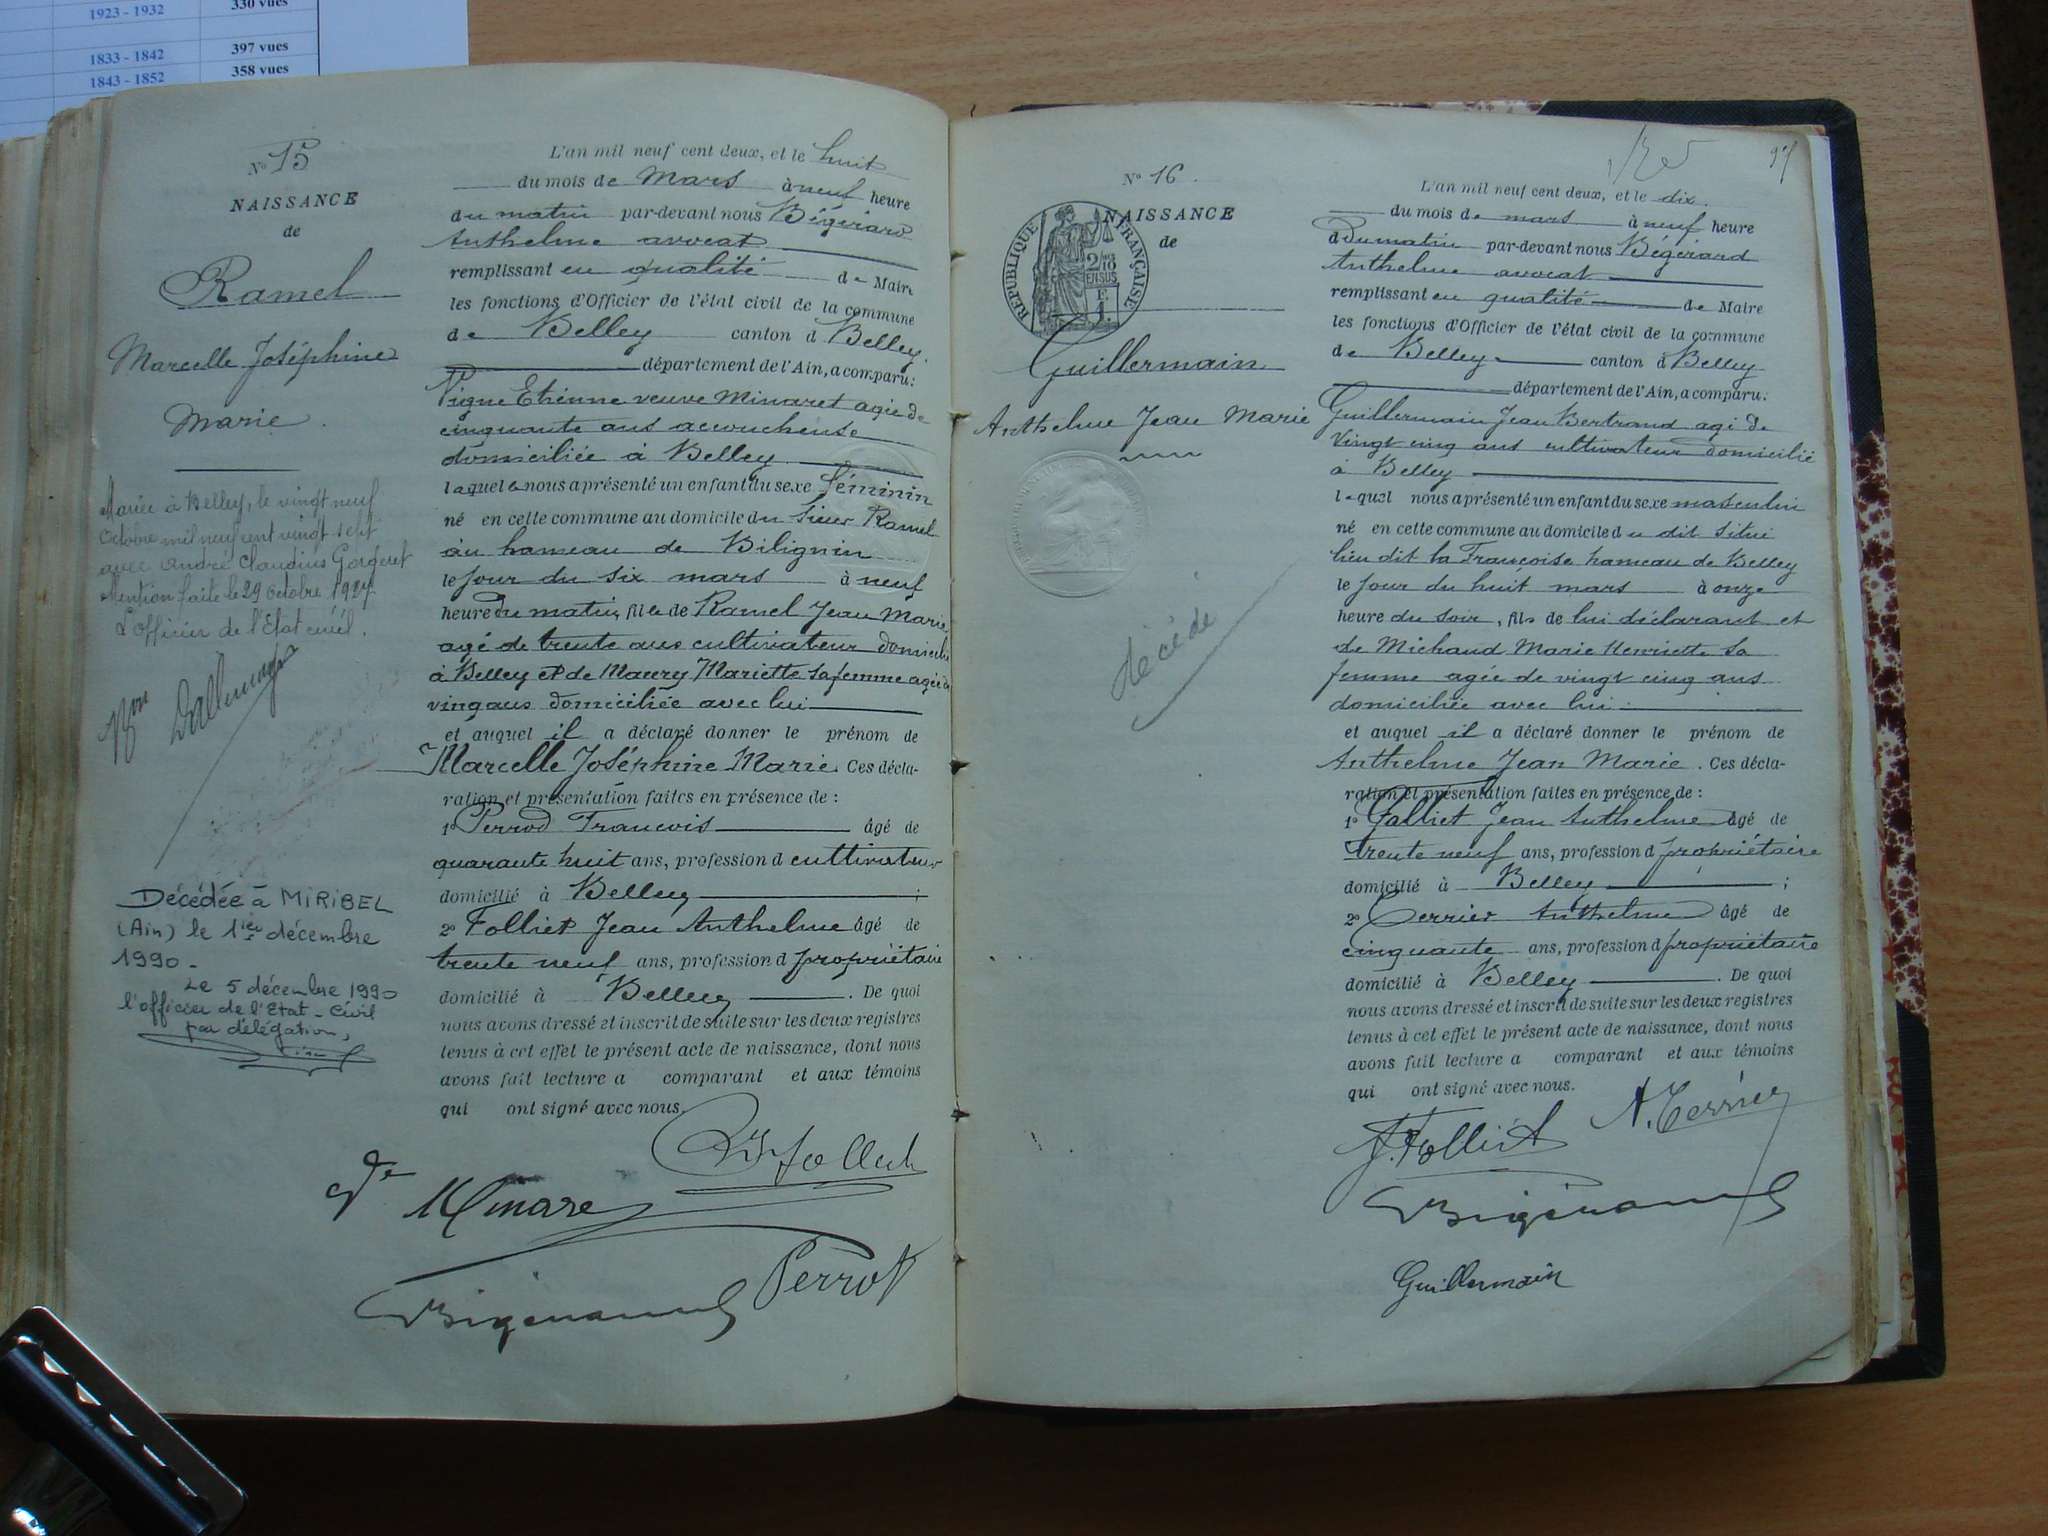 1923 - 1932 330 vues
1833 - 1842 397 vues
1843 - 1852 358 vues
N° 15
NAISSANCE
de
Ramel
Marcelle Joséphine
Marie
Mariée à Belley, le vingt neuf
Octobre mil neuf cent vingt sept
avec André Claudius Gorgeret
Mention faite le 29 octobre 1927
L'officier de l'Etat civil.
Décédée à MIRIBEL
(Ain) le 1ier décembre
1990 -
Le 5 décembre 1990
l'officier de l'Etat-Civil
par délégation,
L'an mil neuf cent deux, et le huit
du mois de Mars à neuf heure
du matin par-devant nous Bégérard
Anthelme avocat
remplissant en qualité de Maire
les fonctions d'Officier de l'état civil de la commune
de Belley canton d Belley.
département de l'Ain, a comparu:
Vigne Etienne veuve Minaret agée de
cinquante ans accoucheuse
domiciliée à Belley
laquelle nous a présenté un enfant du sexe féminin
né en cette commune au domicile du sieur Ramel
au hameau de Bilignin
le jour du six mars à neuf
heure du matin, fille de Ramel Jean Marie
agé de trente ans cultivateur domicilié
à Belley et de Maury Mariette sa femme agée de
vingt ans domiciliée avec lui
et auquel il a déclaré donner le prénom de
Marcelle Joséphine Marie. Ces décla-
ration et présentation faites en présence de :
1° Perrod Francois âgé de
quarante huit ans, profession d cultivateur
domicilié à Belley ;
2° Folliet Jean Anthelme âgé de
trente neuf ans, profession d propriétaire
domicilié à Belley. De quoi
nous avons dressé et inscrit de suite sur les deux registres
tenus à cet effet le présent acte de naissance, dont nous
avons fait lecture a comparant et aux témoins
qui ont signé avec nous.
Folliet
Minaret
Perrod
97
N° 16
NAISSANCE
de
RÉPUBLIQUE FRANÇAISE
2/10
EN SUS
Guillermain
Anthelme Jean Marie
décédé
L'an mil neuf cent deux, et le dix
du mois de mars à neuf heure
du matin par-devant nous Bégérard
Anthelme avocat
remplissant en qualité de Maire
les fonctions d'Officier de l'état civil de la commune
de Belley canton d Belley
département de l'Ain, a comparu:
Guillermain Jean Bertrand agé de
vingt cinq ans cultivateur domicilié
à Belley
lequel nous a présenté un enfant du sexe masculin
né en cette commune au domicile du dit situé
lieu dit la Françoise hameau de Belley
le jour du huit mars à onze
heure du soir, fils de lui déclarant et
de Michaud Marie Henriette sa
femme agée de vingt cinq ans
domiciliée avec lui
et auquel il a déclaré donner le prénom de
Anthelme Jean Marie. Ces décla-
ration et présentation faites en présence de :
1° Folliet Jean Anthelme âgé de
trente neuf ans, profession d propriétaire
domicilié à Belley ;
2° Terrier Anthelme âgé de
cinquante ans, profession d propriétaire
domicilié à Belley. De quoi
nous avons dressé et inscrit de suite sur les deux registres
tenus à cet effet le présent acte de naissance, dont nous
avons fait lecture a comparant et aux témoins
qui ont signé avec nous.
J. Folliet A. Terrier
Guillermain